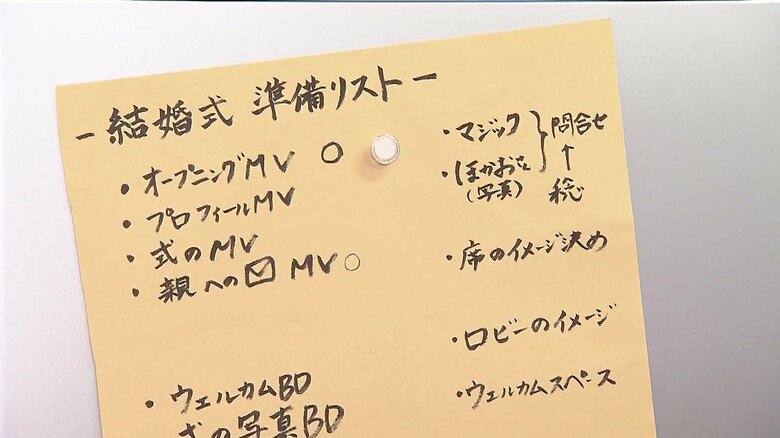 - 結婚式 準備リスト -
・オープニングMV ○
・プロフィールMV
・式のMV
・親への✉ MV○
・ウェルカムBD
式の写真BD
・マジック
・ほかおさん
(写真)
問合せ
↑
・席のイメージ決め
・ロビーのイメージ
・ウェルカムスペース